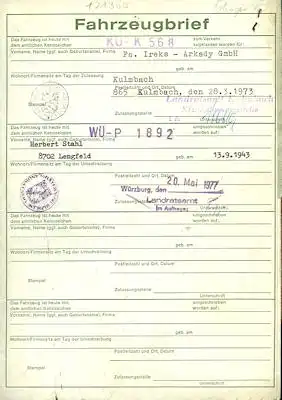 Fahrzeugbrief
Das Fahrzeug ist heute mit dem amtlichen Kennzeichen KU-K 568 zum Verkehr zugelassen worden für:
Vorname, Name (ggf. auch Geburtsname), Firma Fa. Ireks - Arkady GmbH
geb. am
Wohnort/Firmensitz am Tag der Zulassung Kulmbach
Postleitzahl und Ort, Datum
865 Kulmbach, den 28.3.1973
Stempel
Das Fahrzeug ist heute mit dem amtlichen Kennzeichen WÜ-P 1892 umgeschrieben worden auf:
Vorname, Name (ggf. auch Geburtsname), Firma
Herbert Stahl
8702 Lengfeld geb. am 13.9.1943
Postleitzahl und Ort, Datum
Würzburg, den 20. Mai 1977
Landratsamt
Zulassungsstelle Im Auftrag
Das Fahrzeug ist heute mit dem amtlichen Kennzeichen umgeschrieben worden auf:
Vorname, Name (ggf. auch Geburtsname), Firma
geb. am
Wohnort/Firmensitz am Tag der Umschreibung
Postleitzahl und Ort, Datum
Stempel
Zulassungsstelle
Unterschrift
Das Fahrzeug ist heute mit dem amtlichen Kennzeichen umgeschrieben worden auf:
Vorname, Name (ggf. auch Geburtsname), Firma
geb. am
Wohnort/Firmensitz am Tag der Umschreibung
Postleitzahl und Ort, Datum
Stempel
Zulassungsstelle
Unterschrift